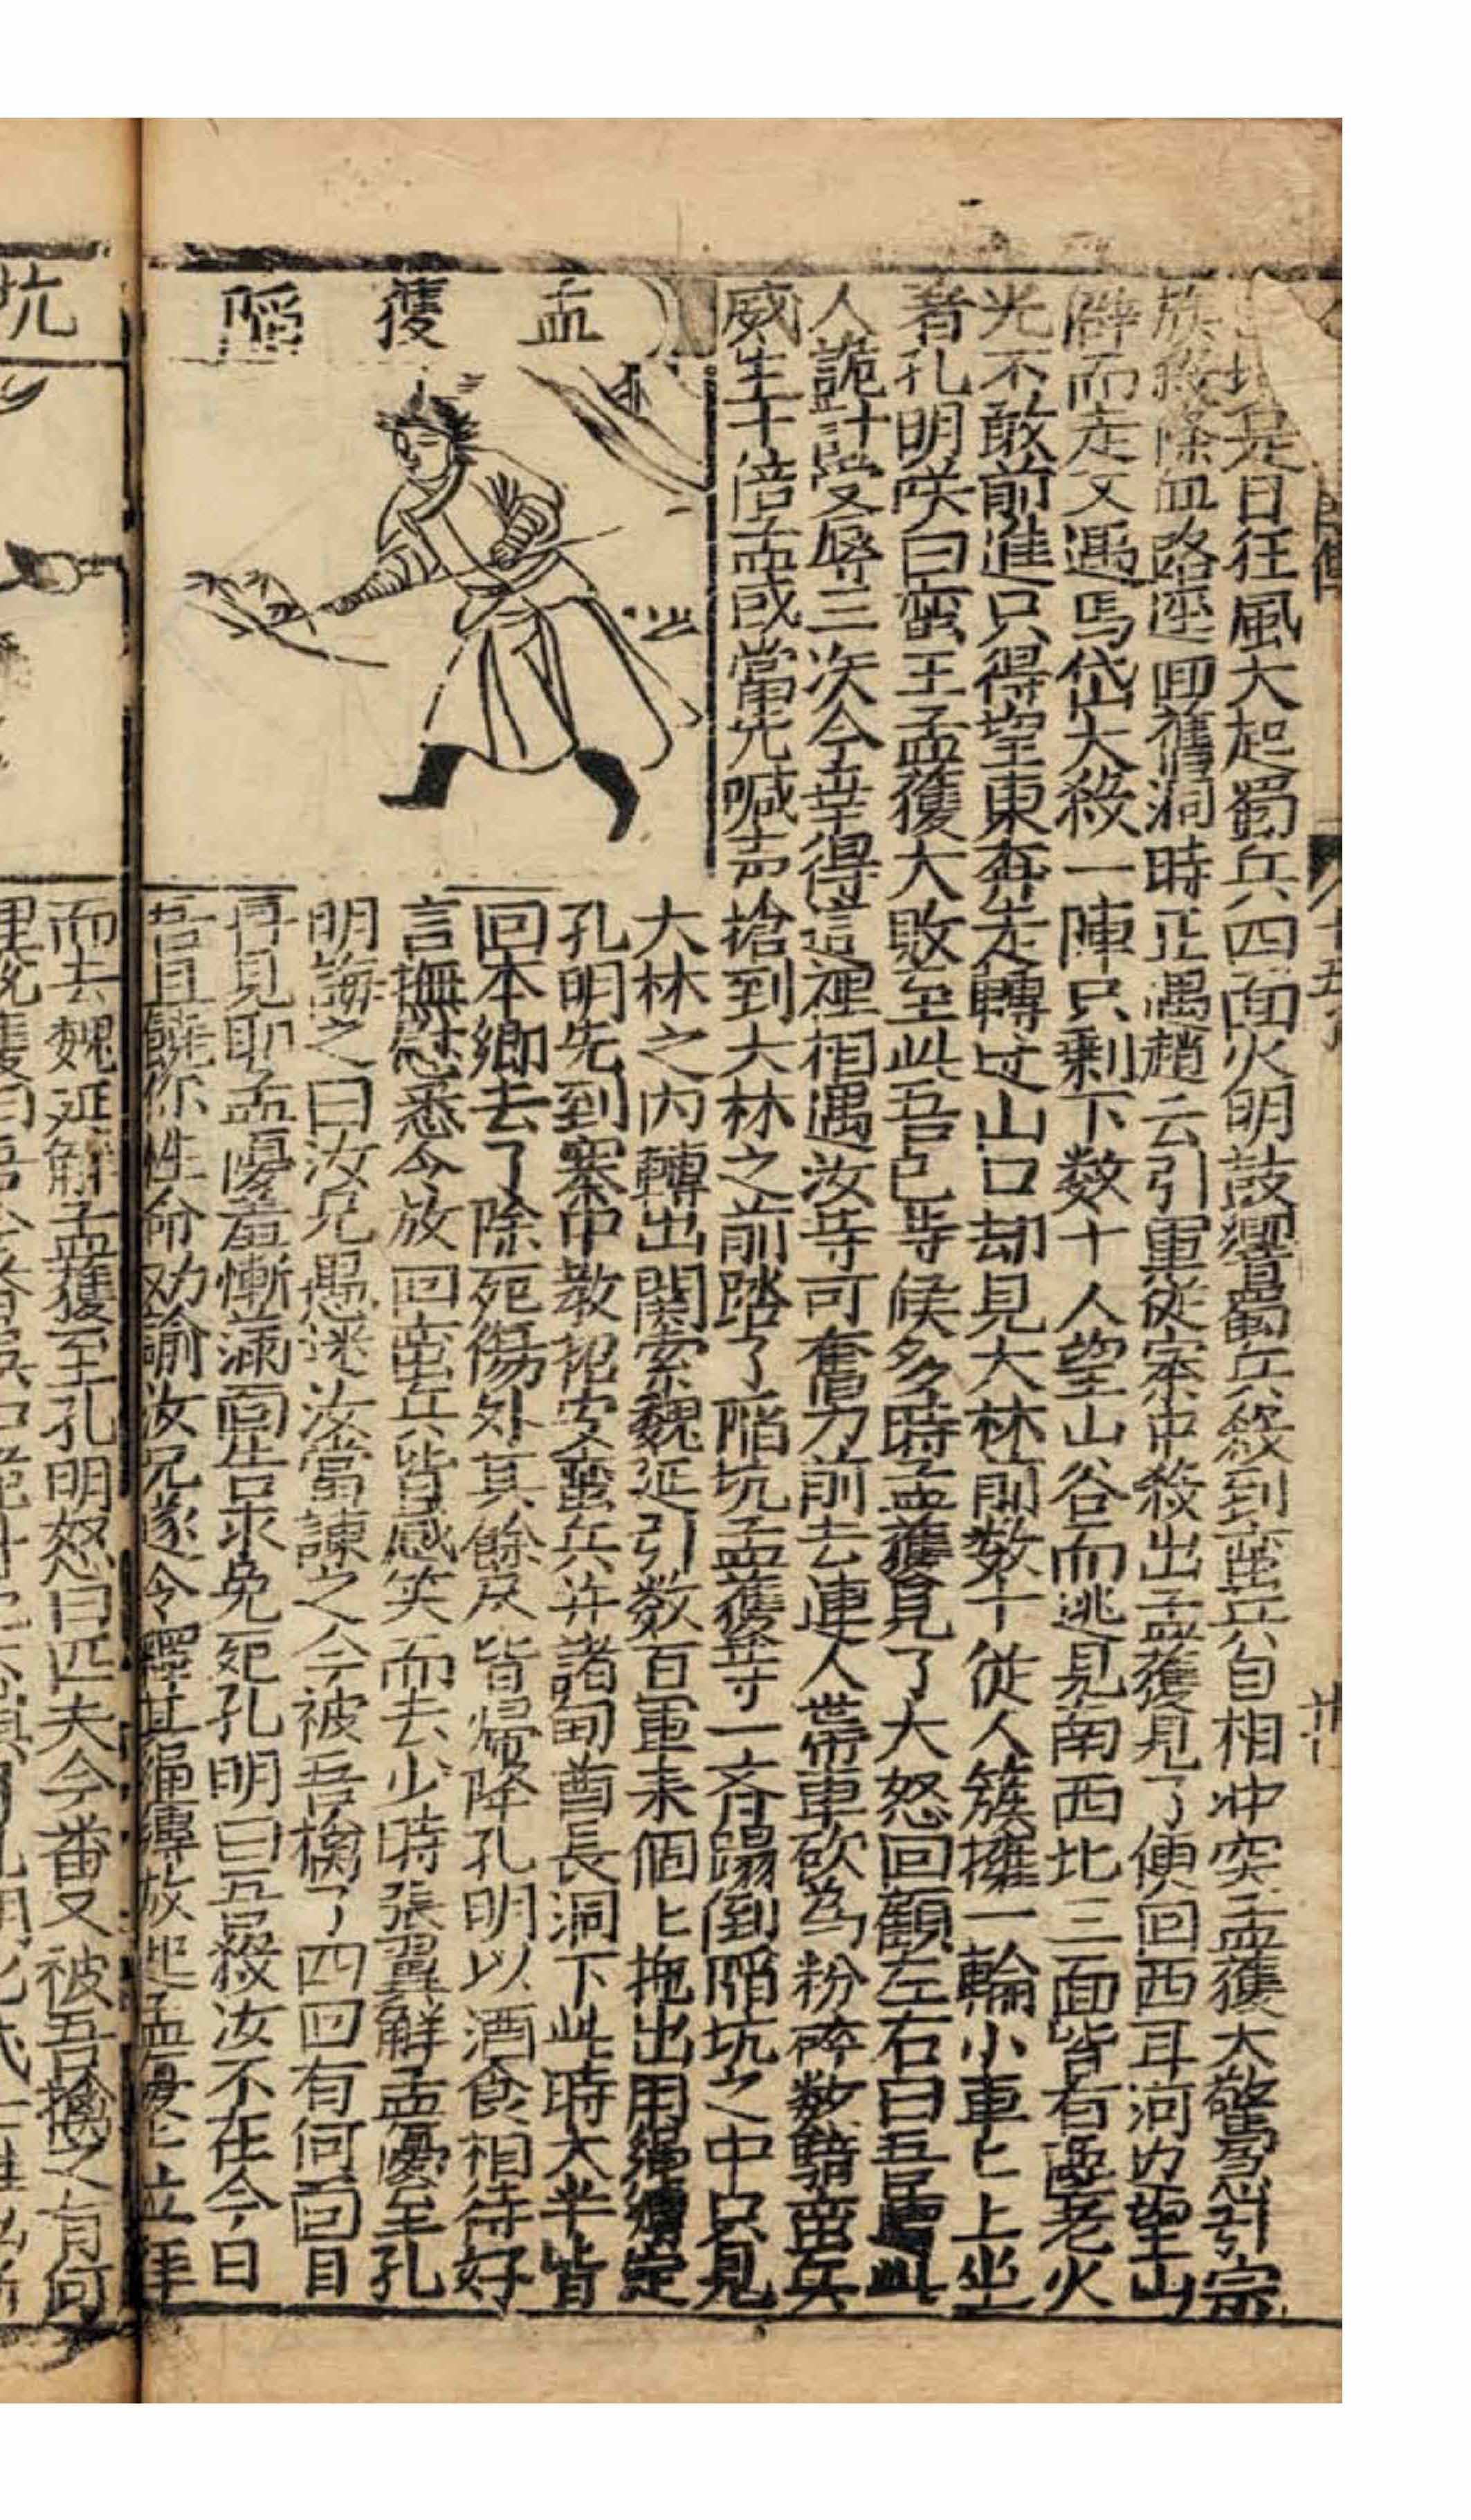 是日狂風大起蜀兵四面火明鼓響蜀兵殺到蛮兵自相冲突孟獲大驚急引宗
族殺條血路逕回舊洞時正遇趙云引軍從寨中殺出孟獲見了便回西耳河边望山
僻而走又遇馬岱大殺一陣只剩下数十人望山谷而逃見南西北三面皆有塵老火
光不敢前進只得望東奔走轉过山口却見大林前数十從人簇擁一輪小車匕上坐
着孔明咲曰蛮王孟獲大敗至此吾已等候多時孟獲見了大怒回顧左右曰吾
人詭計受辱三次今幸得這裡相遇汝等可奮力前去連人帶車砍為粉碎数騎蛮兵
威生十倍孟獲當先喊声搶到大林之前踏了陷坑孟獲等一齊蹋倒陷坑之中只見
大林之内轉出関索魏延引数百軍来個匕拖出用繩縛定
孔明先到寨中教招安蛮兵并諸甸酋長洞下此時大半皆
回本鄉去了除死傷外其餘尽皆歸降孔明以酒食相待好
言撫慰悉令放回蛮兵皆感笑而去少時張翼解孟優至孔
明誨之曰汝兄愚迷汝當諫之今被吾擒了四回有何面目
再見耶孟優羞慚满面告求免死孔明曰吾殺汝不在今日
吾且饒你性命劝諭汝兄遂令釋其繩縛放起孟優泣拜
孟獲陷
坑
而去魏延解孟獲至孔明怒曰匹夫今番又被吾擒之有何